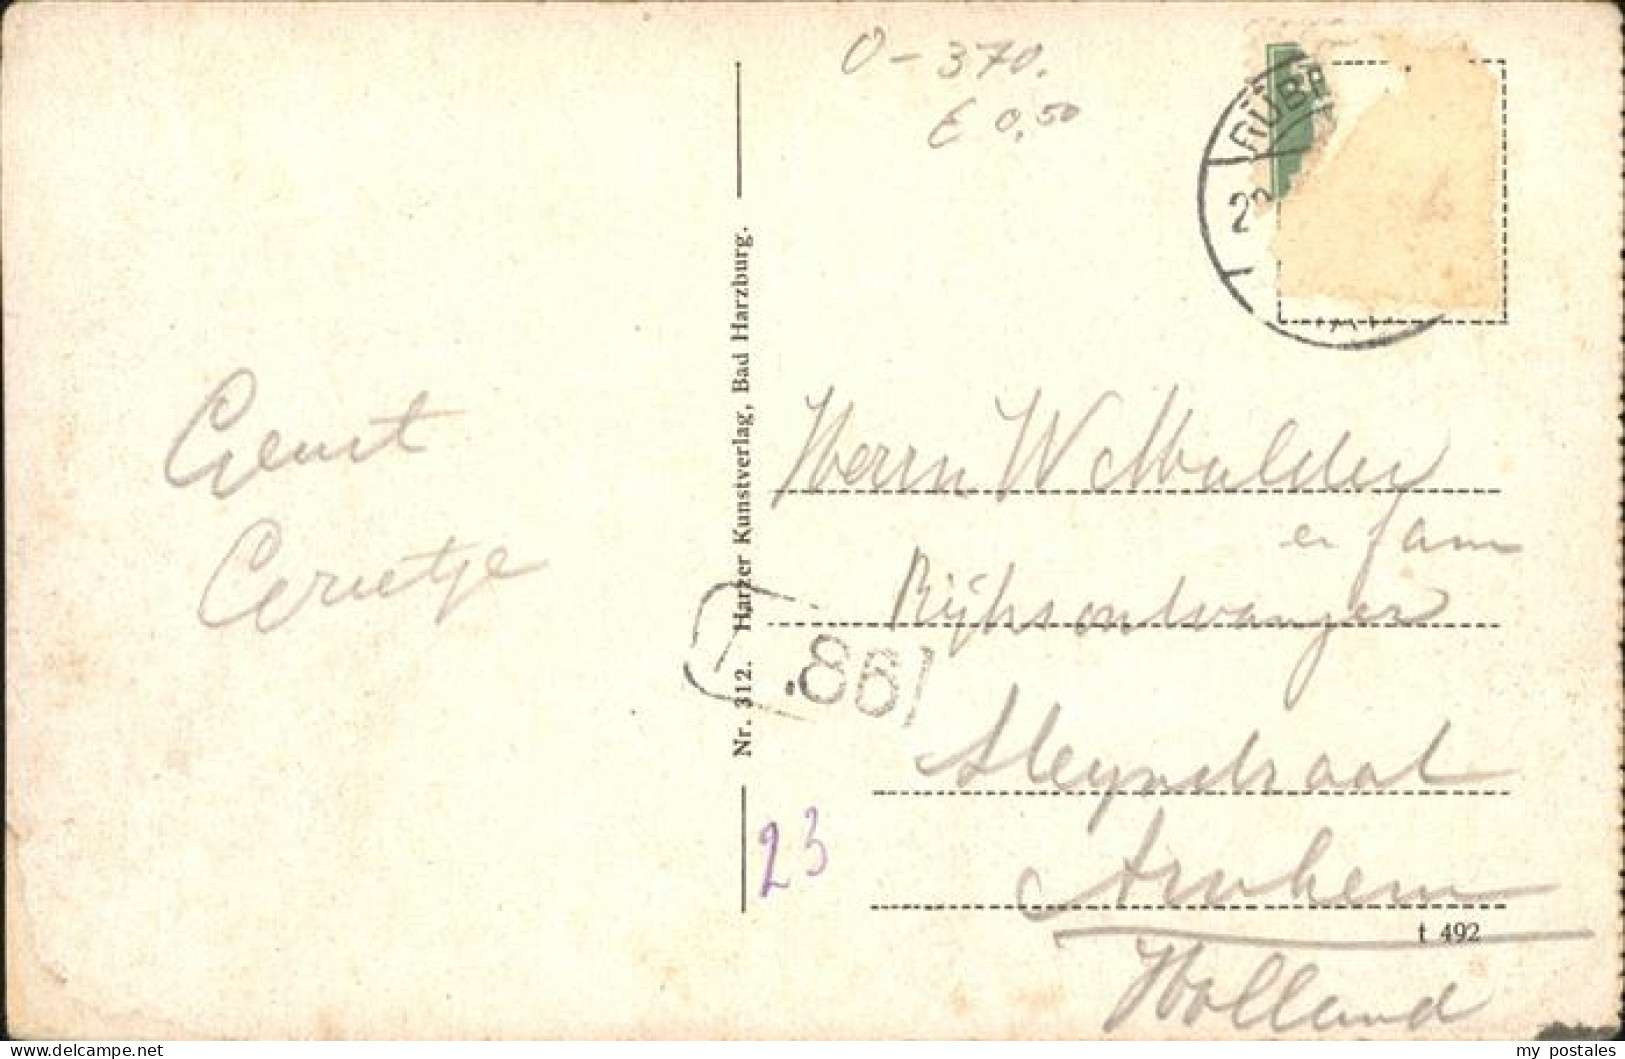 O - 370.
€ 0,50
RÜBE
Nr. 312. Harzer Kunstverlag, Bad Harzburg.
Herrn W Mulder
en fam
Rijksontvanger
Steynstraat
Arnhem
Holland
t 492
T
.86
23
my postales
delcampe.net